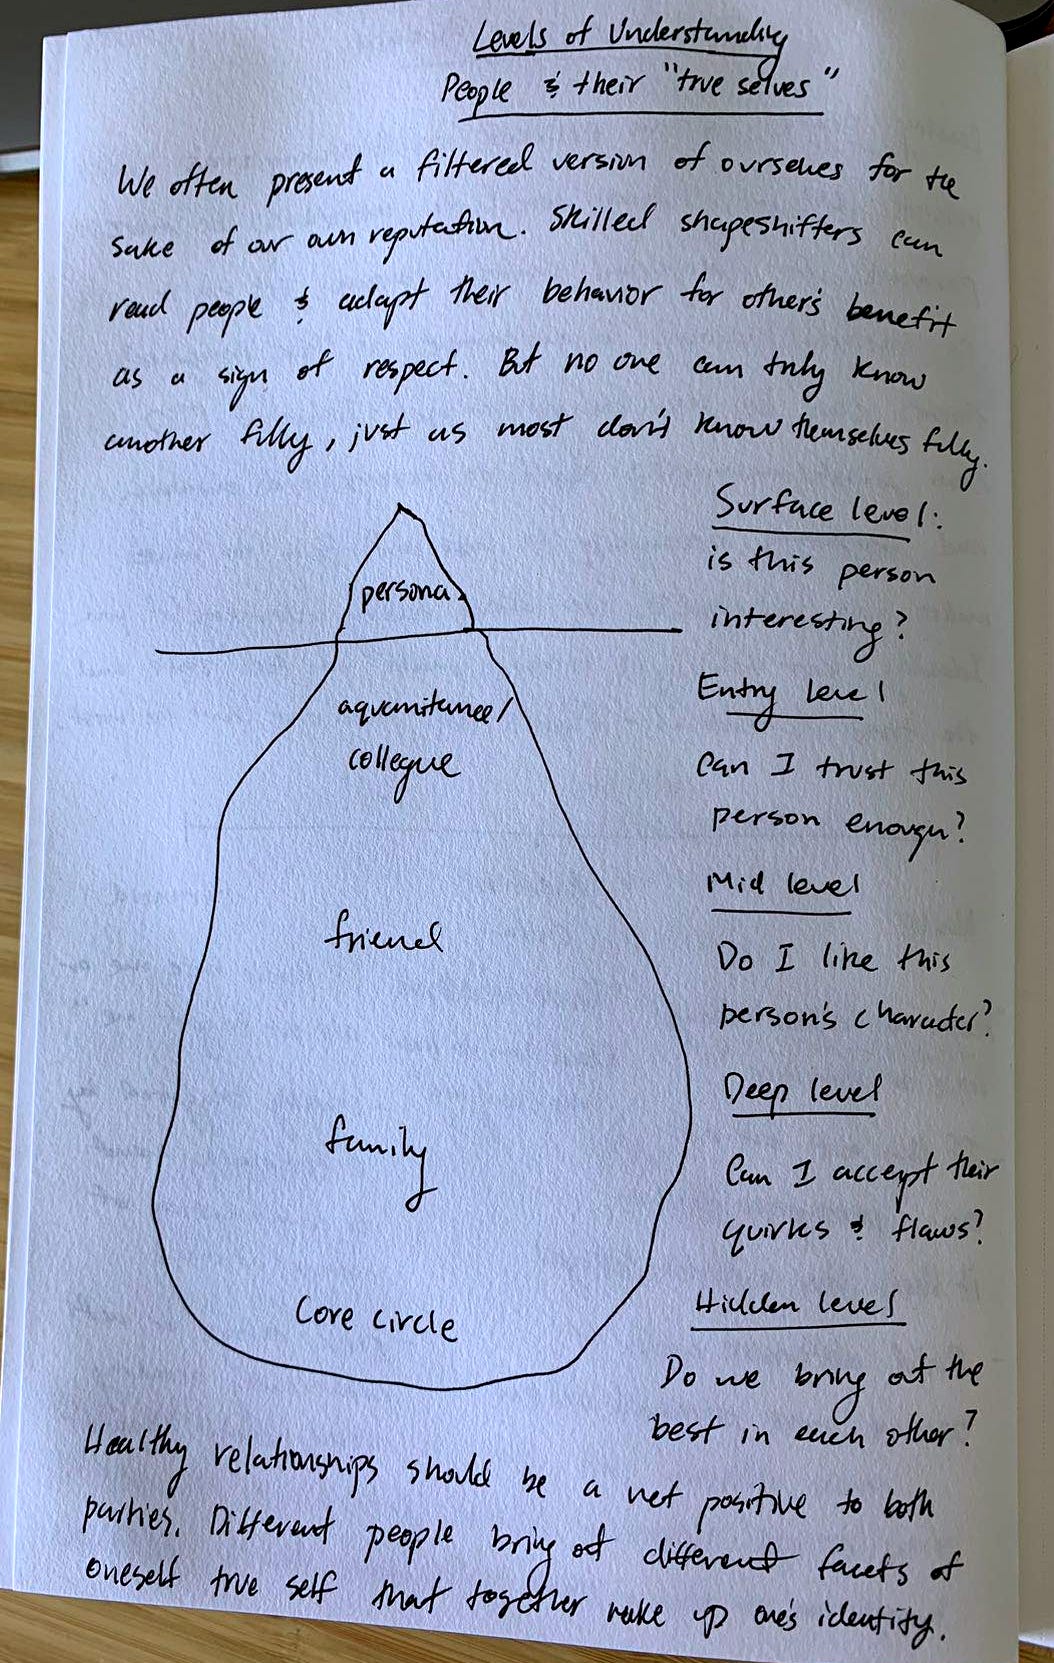 Levels of Understanding
People & their "true selves"
We often present a filtered version of ourselves for the
sake of our own reputation. Skilled shapeshifters can
read people & adapt their behavior for other's benefit
as a sign of respect. But no one can truly know
another fully, just as most don't know themselves fully.
persona
aquamitance/
collegue
friend
family
Core circle
Surface level:
is this person
interesting?
Entry level
Can I trust this
person enough?
Mid level
Do I like this
person's character?
Deep level
Can I accept their
quirks & flaws?
Hidden level
Do we bring out the
best in each other?
Healthy relationships should be a net positive to both
parties. Different people bring out different facets of
oneself true self that together make up one's identity.